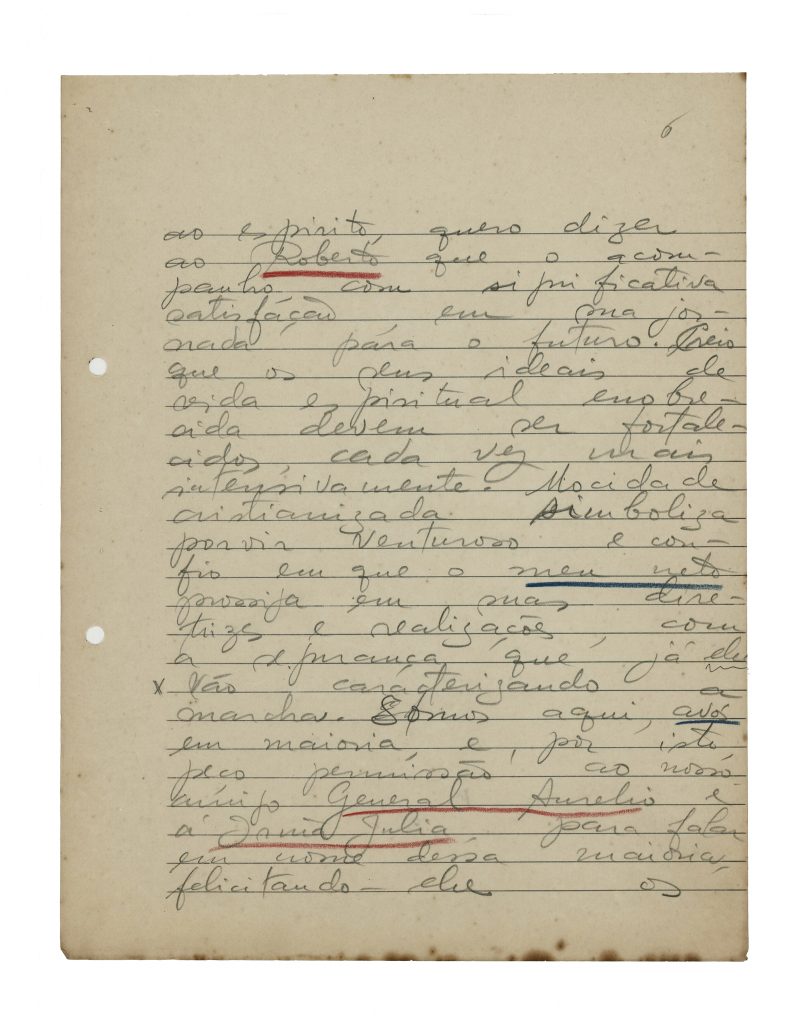 6
ao espirito, quero dizer
ao Roberto que o acom-
panho com significativa
satisfação em sua jor-
nada pára o futuro. Creio
que os seus ideais de
vida espiritual enobre-
cida devem ser fortale-
cidos, cada vez mais
intensivamente. Mocidade
cristianizada simboliza
porvir venturoso e con-
fio em que o meu neto
prossiga em suas dire-
trizes e realizações, com
a segurança que já lhe
x vão caracterizando a
marcha. Somos aqui, avós
em maioria, e, por isto,
peço permissão ao nosso
amigo General Aurelio e
á Irmã Julia para falar
em nome dessa maioria,
felicitando-lhe os